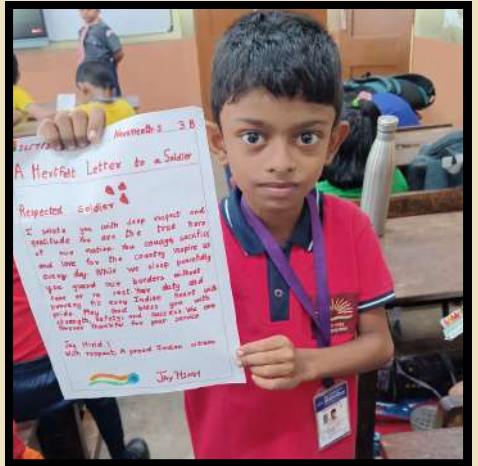 Navaneeth.S 3 B
A Hertfelt Letter to a Soldier
Respected soldier
I salute you with deep respect and
gratitude You are the true hero
of our nation. You courage, sacrifice
and love for the country inspire us
every day While we sleep peacefully
you guard our borders without
fear or rest. duty and
every Indian heart with
pride. May God bless you with
strength, safety, and success. We are
forever thankful for your service.
Jay Hind !
With respect, A proud Indian citizen
JAY HIND!